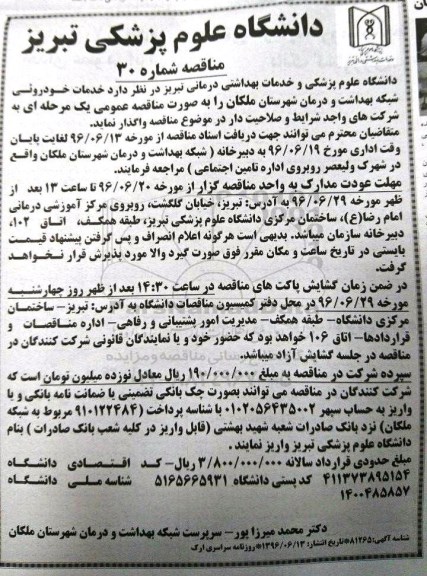 دانشگاه علوم پزشکی تبریز
مناقصه شماره ۳۰
دانشگاه علوم پزشکی و خدمات بهداشتی درمانی تبریز در نظر دارد خدمات خودروئی
شبکه بهداشت و درمان شهرستان ملکان را به صورت مناقصه عمومی یک مرحله ای به
شرکت های واجد شرایط و صلاحیت دار در موضوع مناقصه واگذار نماید.
متقاضیان محترم می توانند جهت دریافت اسناد مناقصه از مورخه ۹۶/۰۶/۱۳ لغایت پایان
وقت اداری مورخ ۹۶/۰۶/۱۹ به دبیرخانه ( شبکه بهداشت و درمان شهرستان ملکان واقع
در شهرک ولیعصر روبروی اداره تامین اجتماعی ) مراجعه فرمایند.
مهلت عودت مدارک به واحد مناقصه گزار از مورخه ۹۶/۰۶/۲۰ تا ساعت ۱۳ بعد از
ظهر مورخه ۹۶/۰۶/۲۹ به آدرس: تبریز خیابان گلگشت، روبروی مرکز آموزشی درمانی
امام رضا(ع)، ساختمان مرکزی دانشگاه علوم پزشکی تبریز، طبقه همکف، اتاق ۱۰۲،
دبیرخانه سازمان میباشد. بدیهی است هرگونه اعلام انصراف و پس گرفتن پیشنهاد قیمت
بایستی در تاریخ ساعت و مکان مقرر فوق صورت گیرد والا مورد پذیرش قرار نخواهد
گرفت.
در ضمن زمان گشایش پاکت های مناقصه در ساعت ۱۴:۳۰ بعد از ظهر روز چهارشنبه
مورخه ۹۶/۰۶/۲۹ در محل دفتر کمیسیون مناقصات دانشگاه به آدرس: تبریز- ساختمان
مرکزی دانشگاه- طبقه همکف- مدیریت امور پشتیبانی و رفاهی- اداره مناقصات و
قراردادها- اتاق ۱۰۶ خواهد بود که حضور خود و یا نمایندگان قانونی شرکت کنندگان در
مناقصه در جلسه گشایش آزاد میباشد.
سپرده شرکت در مناقصه به مبلغ ۱۹۰/۰۰۰/۰۰۰ ریال معادل نوزده میلیون تومان است که
شرکت کنندگان در مناقصه می توانند بصورت چک بانکی تضمینی یا ضمانت نامه بانکی و یا
واریز به حساب سپهر ۰۱۰۲۰۵۶۴۳۵۰۰۲ با شناسه پرداخت (۹۱۰۱۲۲۴۸۴ مربوط به شبکه
ملکان) نزد بانک صادرات شعبه شهید بهشتی (قابل واریز در کلیه شعب بانک صادرات ) بنام
دانشگاه علوم پزشکی تبریز واریز نمایند.
مبلغ حدودی قرارداد سالانه ۳/۸۰۰/۰۰۰/۰۰۰ ریال- کد اقتصادی دانشگاه
۴۱۱۳۷۳۸۹۵۱۵۴ کد پستی دانشگاه ۵۱۶۵۶۶۵۹۳۱ شناسه ملی دانشگاه
۱۴۰۰۴۸۵۸۵۷
دکتر محمد میرزا پور- سرپرست شبکه بهداشت و درمان شهرستان ملکان
شناسه آگهی: ۸۱۲۶۵*تاریخ انتشار: ۱۳۹۶/۰۶/۱۳*روزنامه سراسری ارک